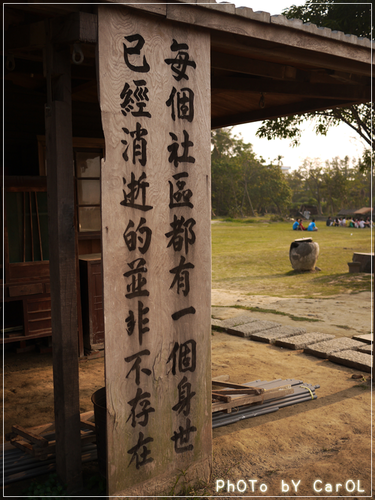 每個社區都有一個身世
已經消逝的並非不存在
PhOTo bY CarOL